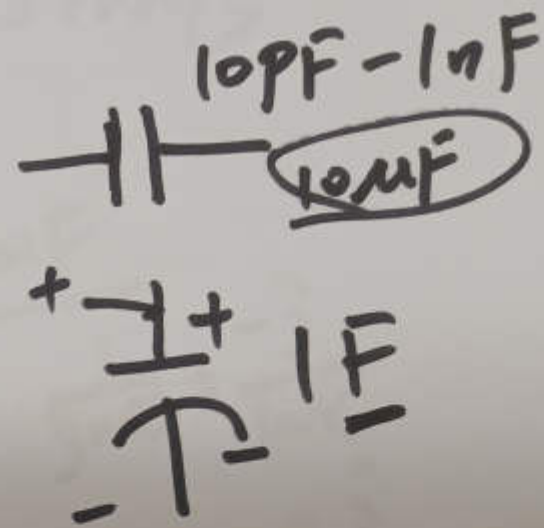 10PF-1nF
10μF
+ +
1F
-
-